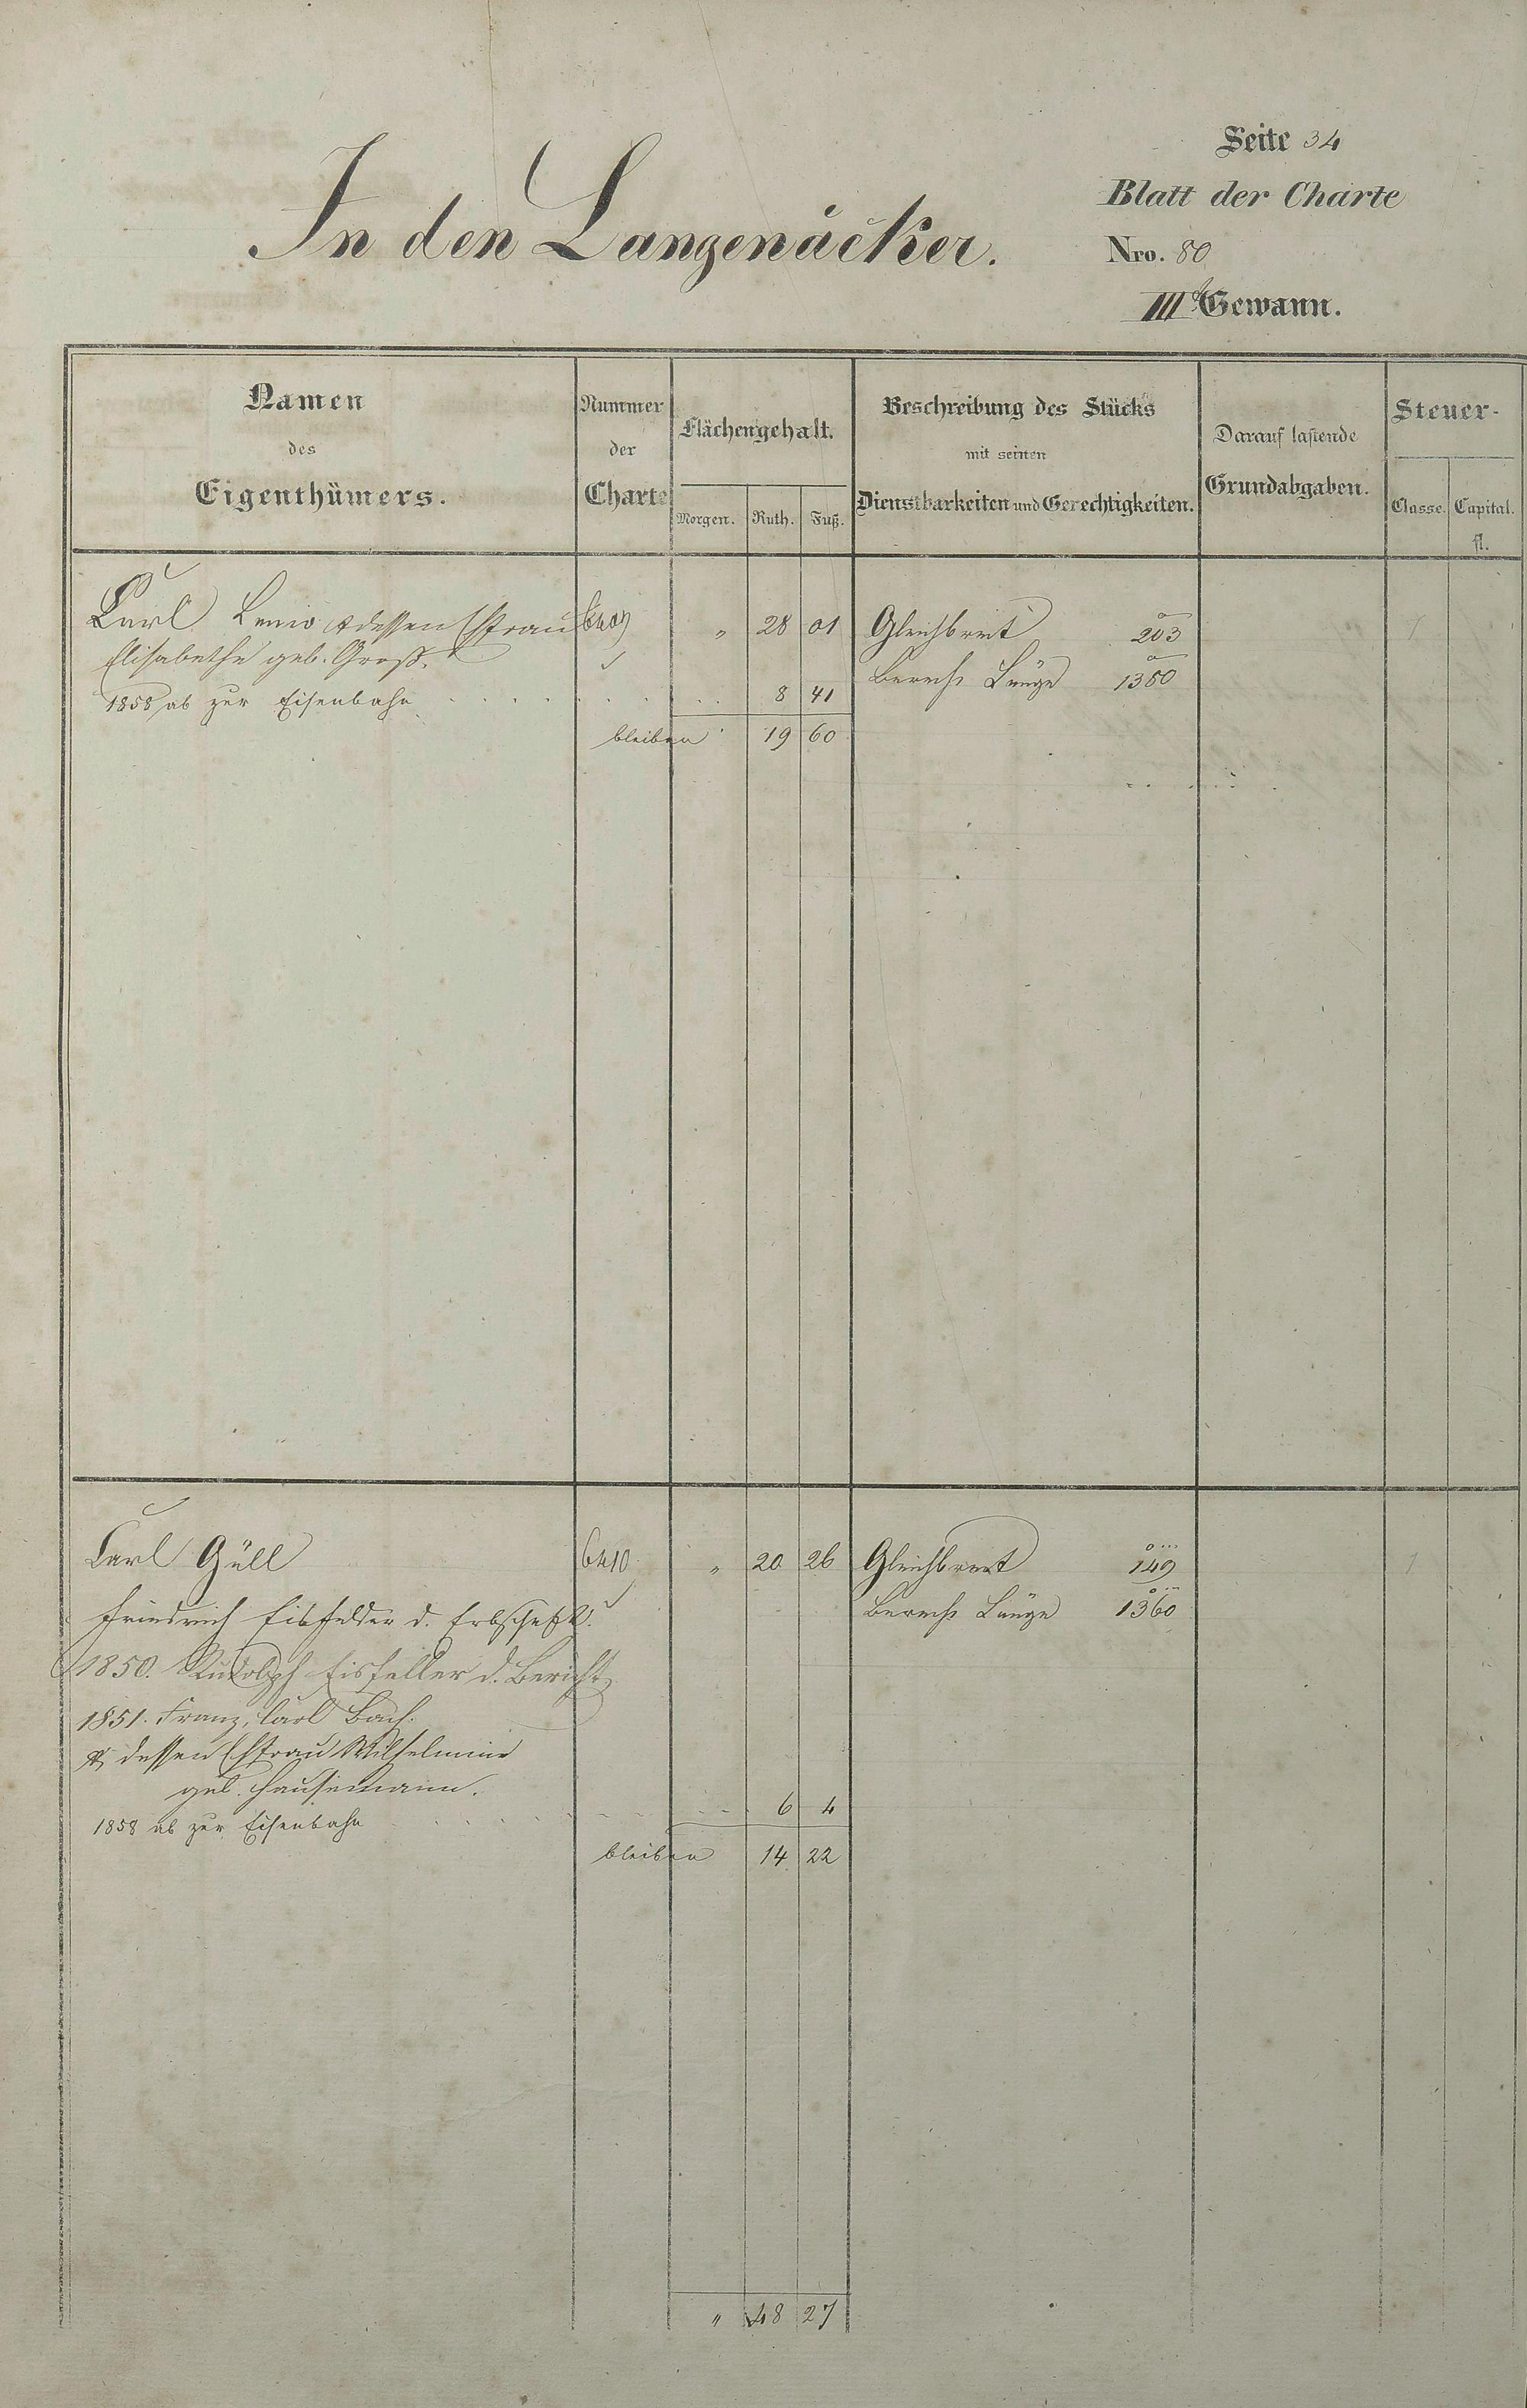 Seite 34
Blatt der Charte
In den Langenäcker.
Nro. 80
III.te Gewann.
Namen
des
Eigenthümers.
Nummer
der
Charte
Flächengehalt.
Morgen. Ruth. Fuß.
Beschreibung des Stücks
mit seinen
Dienstbarkeiten und Gerechtigkeiten.
Darauf lastende
Grundabgaben.
Steuer-
Classe. Capital.
fl.
Carl & dessen Ehfrau 6409 " 28 01 Gleichbreit 203
Elisabetha geb. Groß.
Berech Länge 1380
1858 ab zur Eisenbahn 8 41
bleiben 19 60
Carl Güll 6410 " 20 26 Gleichbreit 149
Friedrich Eisfelder d. Erbschaft. Berech Länge 1360
1850. Rudolph Eisfeller d. Bericht
1851. Franz, Carl Bach.
& dessen Ehfrau Wilhelmine
geb. Hausemann.
6 4
1858 ab zur Eisenbahn
bleiben 14 22
" 48 27